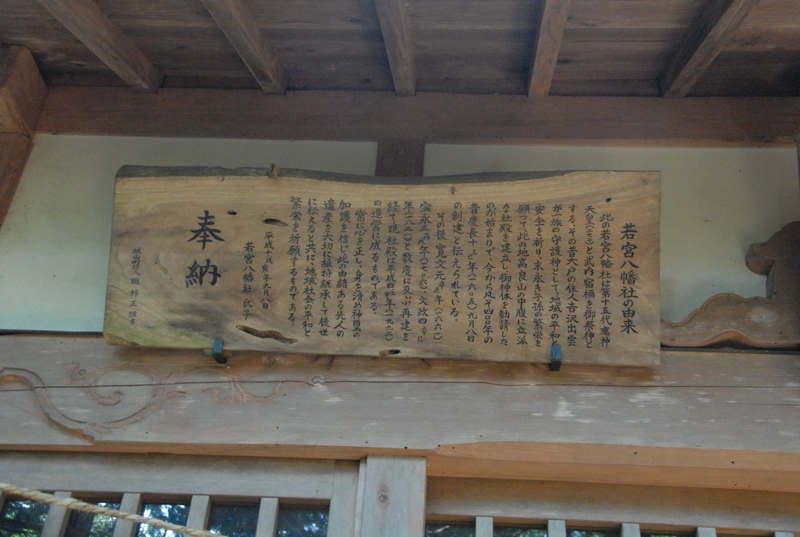 若宮八幡社由来
此の若宮八幡社は第十五代應神
天皇と武内宿禰を御祭神と
する。その昔大戸の住人吉沢出雲
が一族の守護神として、地域の平和
安全を祈り、末永き子孫の繁栄を
願って此の地宮良山の中腹に立派
な社殿を建立し御神体を勧請した
のが始まりで、今から凡そ四〇〇年の
昔慶長十
の創建と伝えられている。
その後寛文元年(一六六一)
宝永 文政の
年 と数度に及ぶ再建を
経て現社殿は平成四年(一九九二)
の造営に成るものである。
當に心を正し、身を清め神前の
加護を信じ此の由緒ある先人の
遺産を大切に維持継承して後世
に伝えると共に、地域社会の平和と
繁栄を祈願するものである。
平成十 年九月八日
若宮八幡社 氏子
奉納